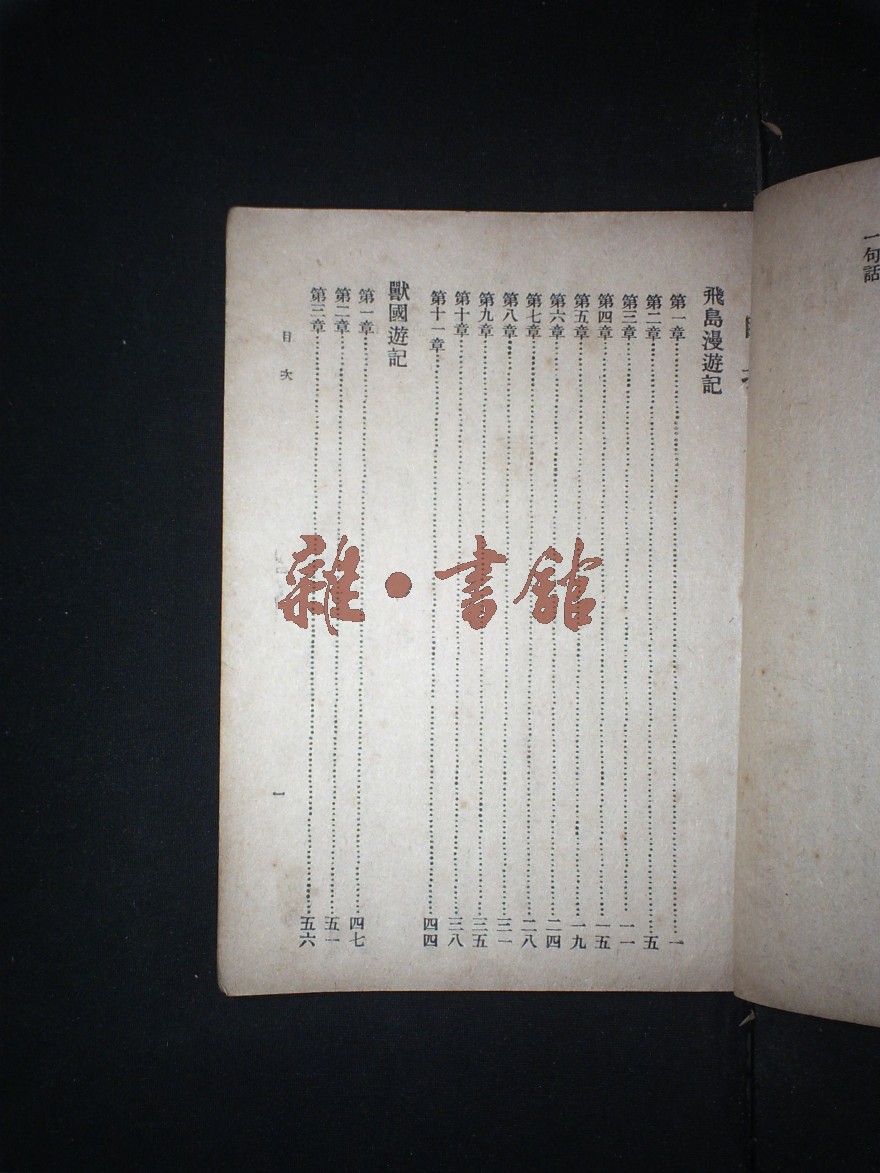 一句話
飛島漫遊記
第一章…………一
第二章…………五
第三章…………一一
第四章…………一五
第五章…………一九
第六章…………二四
第七章…………二八
第八章…………三一
第九章…………三五
第十章…………三八
第十一章…………四四
獸國遊記
第一章…………四七
第二章…………五一
第三章…………五六
目次
一
雜·書館